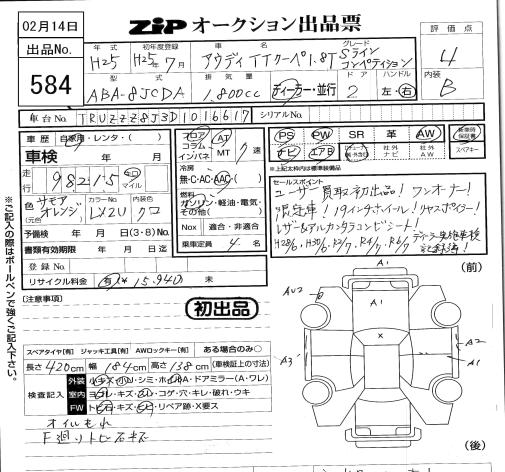 02月14日
ZiP オークション出品票
評価点
出品No.
584
年式 初年度登録 車名 グレード
H25 H25年7月 アウディ TTクーペ 1.8T Sライン コンペティション
4
型式 排気量 ドア ハンドル
ABA-8JCDA 1,800cc ディーラー・並行 2 左・右
内装
B
車台No. TRUZZZ8J3D1016617 シリアルNo.
車歴 自家用・レンタ・( )
車検 年 月
フロア コラム インパネ AT MT 7速
PS PW SR 革 AW
新車時保証書
ナビ エアB 社外ナビ 社外AW スペアキー
※上記太枠内は標準装備品
走行 98215 キロ マイル
冷房
無・C・AC・AAC( )
燃料
ガソリン・軽油・電気・その他( )
セールスポイント
ユーザー買取初出品! ワンオーナー!
限定車! 19インチホイール! リヤスポイラー!
レザー&アルカンタラコンビシート!
H28/6、H30/6、R2/7、R4/7、R6/7 ディーラー点検整備記録簿!
色(元色) サモアオレンジ カラーNo. LX2U 内装色 クロ
予備検 年 月 日(3・8)No.
Nox 適合・非適合
書類有効期限 年 月 日迄
乗車定員 4名
登録No.
リサイクル料金 有 ¥15,940 未
(前)
[注意事項]
初出品
※ご記入の際はボールペンで強くご記入下さい。
A1
AU2 A1
X
A3 A2
A1
スペアタイヤ[有] ジャッキ工具[有] AWロックキー[有] ある場合のみ○
長さ420cm 幅184cm 高さ138cm (車検証上の寸法)
検査記入 外装 小キズ・小U・シミ・ホイルA・ドアミラー(A・ワレ)
室内 ヨゴレ・キズ・コゲ・穴・キレ・破れ・ウキ
FW トビ石・キズ・リペア跡・X要ス
オイルもれ
F廻りトビ石キズ
(後)